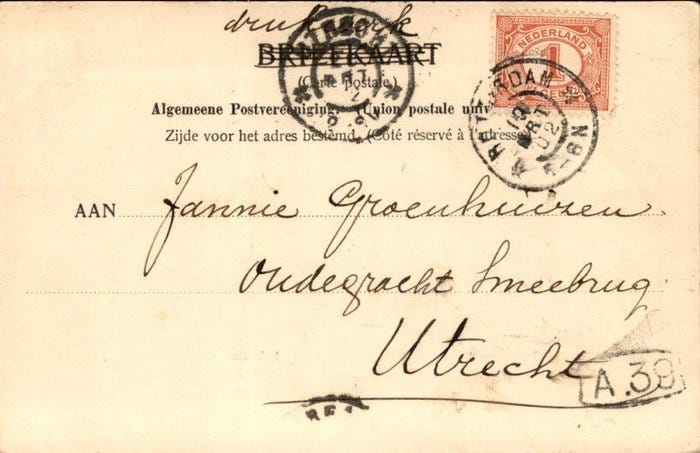 drukwerk
BRIEFKAART
(Carte postale)
Algemeene Postvereeniging. (Union postale
Zijde voor het adres bestemd. (Côté réservé à l'adresse)
NEDERLAND
1
CENT
AAN Jannie Groenhuizen
Oudegracht Smeebrug
Utrecht
A.39